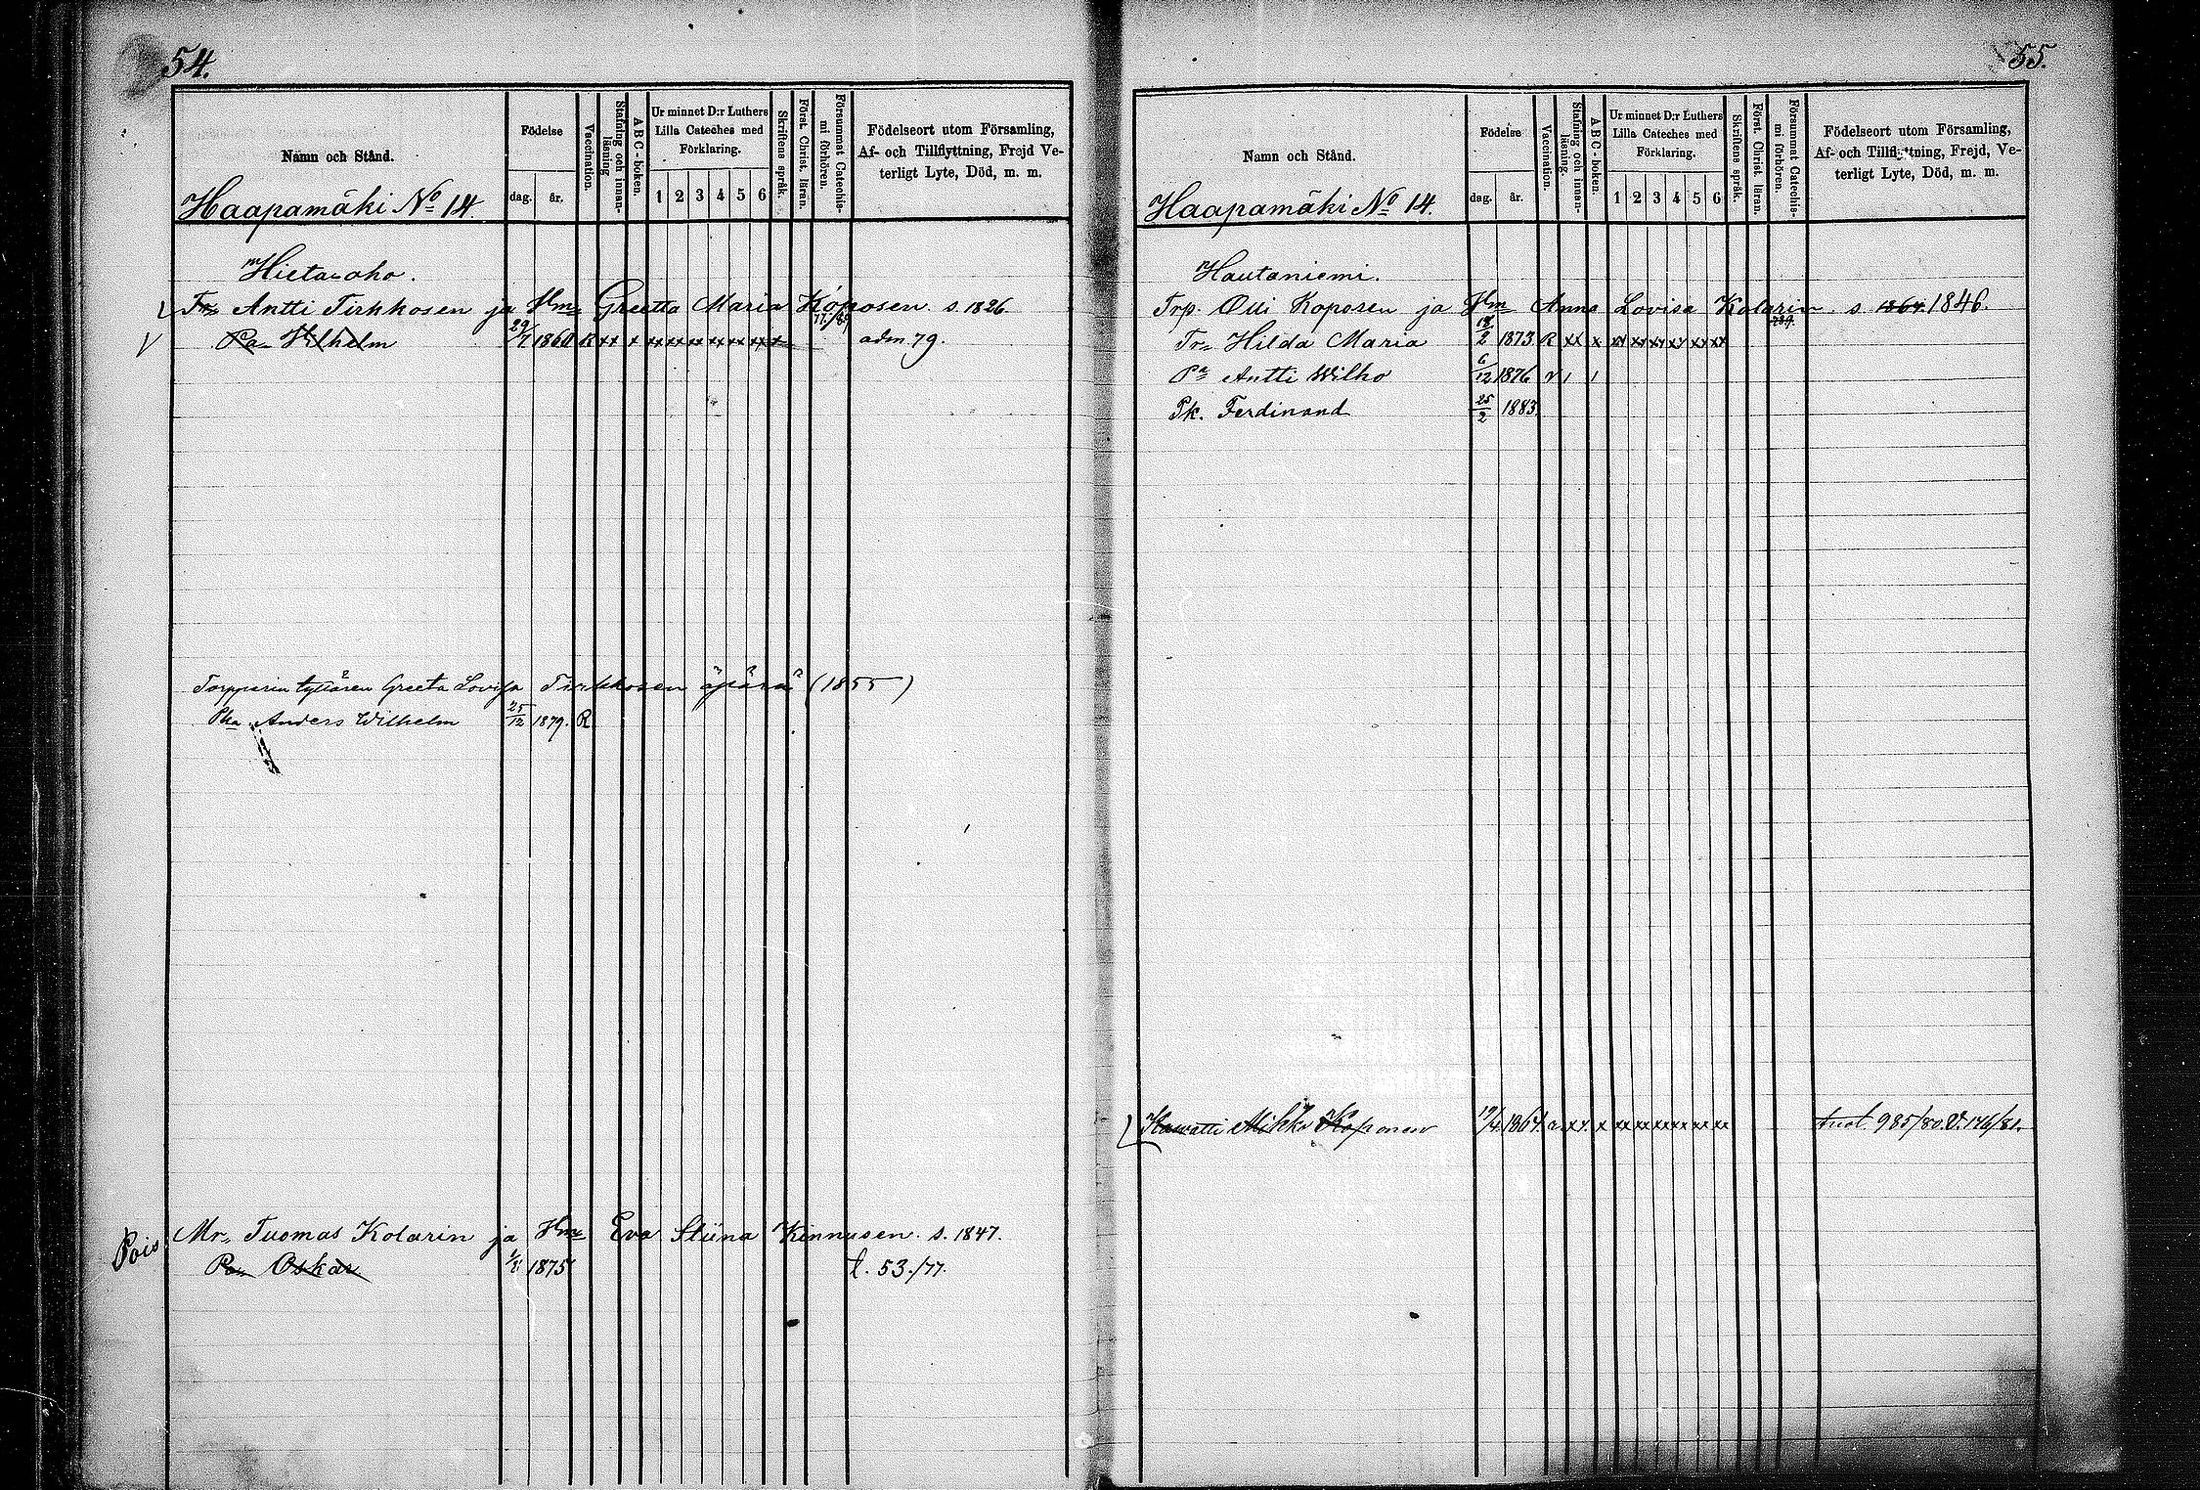 54.
Namn och Stånd.
Födelse
dag. år.
Vaccination.
Stafning och innan-
läsning
A B C-boken.
Ur minnet D:r Luthers
Lilla Cateches med
Förklaring.
1 2 3 4 5 6
Skriftens språk.
Först. Christ. läran.
Försummat Catechis-
mi förhören.
Födelseort utom Församling,
Af- och Tillflyttning, Frejd Ve-
terligt Lyte, Död, m. m.
Haapamäki No 14
Hieta-aho.
Antti Tirkkosen ja Hm Greetta Maria Koposen. s. 1826.
Pa Vilhelm 29/7 1860 R xx x xx xx xx xx xx xx x adm. 79.
Torpparin tyttären Greeta Lovisa Tirkkosen äpärä (1855)
Pka Anders Wilhelm 25/12 1879. R
Pois
Mr. Tuomas Kolarin ja Hm Eva Stiina Kinnusen. s. 1847.
Pa Oskar 1875 l. 53./77.
55.
Namn och Stånd.
Födelse
dag. år.
Vaccination.
Stafning och innan-
läsning.
A B C-boken.
Ur minnet D:r Luthers
Lilla Cateches med
Förklaring.
1 2 3 4 5 6
Skriftens språk.
Först. Christ. läran.
Försummat Catechis-
mi förhören.
Födelseort utom Församling,
Af- och Tillflyttning, Frejd, Ve-
terligt Lyte, Död, m. m.
Haapamäki No 14.
Hautaniemi.
Trp. Olli Koposen ja Hm Anna Lovisa Kolarin. s. 1864. 1846.
Tr. Hilda Maria 2 1873 R xx x xx xx xx xx xx xx
Pa Antti Wilho 6/12 1876 v 1 1
Pk. Ferdinand 25/2 1883
Kasvatti Mikko Koponen 19/4 1864. a xx. x xx xx xx xx xx xx tuol. 985/80. V. 146/81.